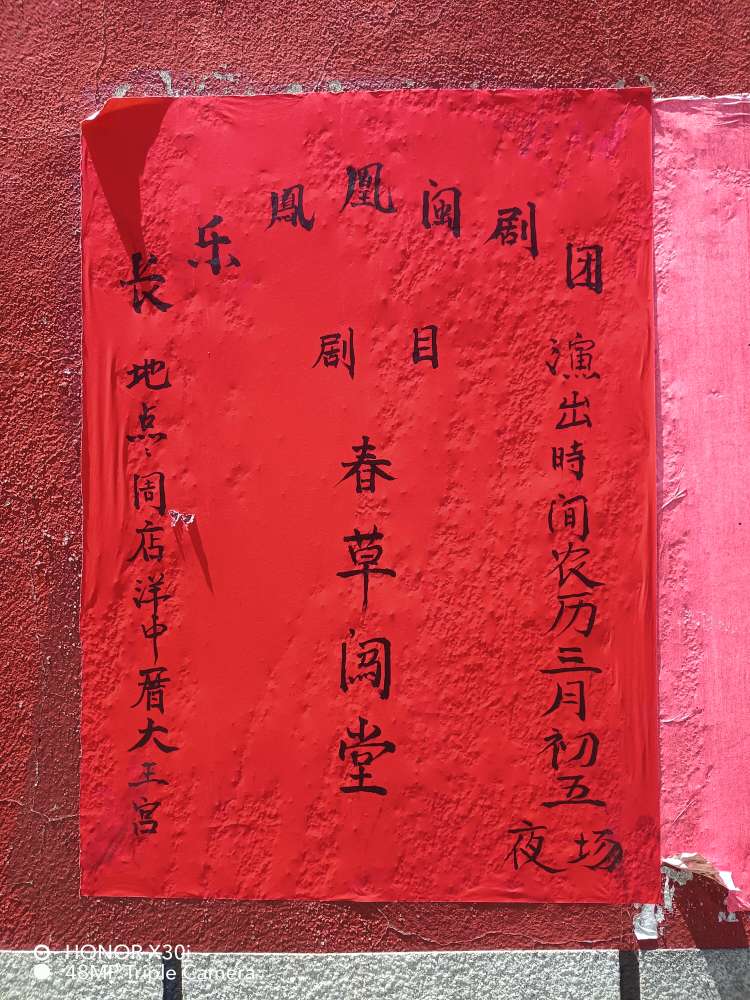 长乐鳳凰闽剧团
剧目
春草闯堂
演出時间农历三月初五
夜场
地点：周店洋中厝大王宫
HONOR X30i
48MP Triple Camera